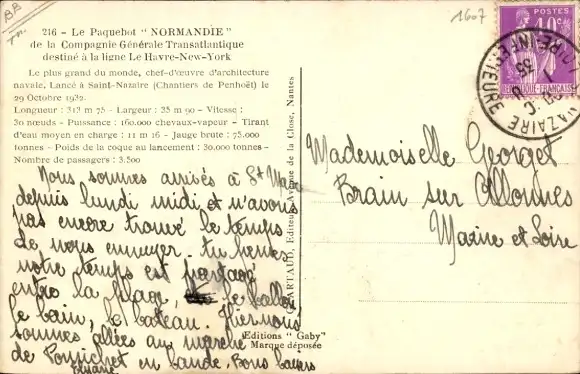 BB
1607
216 - Le Paquebot "NORMANDIE"
de la Compagnie Générale Transatlantique
destiné à la ligne Le Havre-New-York
Le plus grand du monde, chef-d'œuvre d'architecture
navale, Lancé à Saint-Nazaire (Chantiers de Penhoët) le
29 Octobre 1932.
Longueur : 313 m 75 - Largeur : 35 m 90 - Vitesse :
30 nœuds - Puissance : 160.000 chevaux-vapeur - Tirant
d'eau moyen en charge : 11 m 16 - Jauge brute : 75.000
tonnes - Poids de la coque au lancement : 30.000 tonnes -
Nombre de passagers : 3.500
Nous sommes arrivés à St Marc
depuis lundi midi et n'avons
pas encore trouvé le temps
de nous ennuyer.
notre temps est partagé
entre la plage, le ballon
le bain, le bateau. Hier nous
sommes allées au marché
de Pornichet en bande. Bons baisers
Editeur, Avenue de la Close, Nantes
Editions "Gaby"
Marque déposée
POSTES
40c
REPUBLIQUE FRANÇAISE
NAZAIRE
LOIRE-INFERIEURE
35
Mademoiselle Georget
Brain sur Allonnes
Maine et Loire